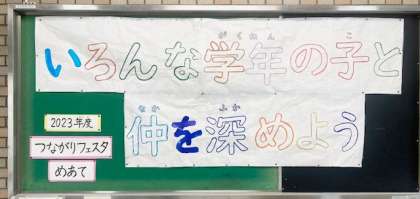 がくねん こ
いろんな学年の子と
なか ふか
仲を深めよう
2023年度
つながりフェスタ
めあて